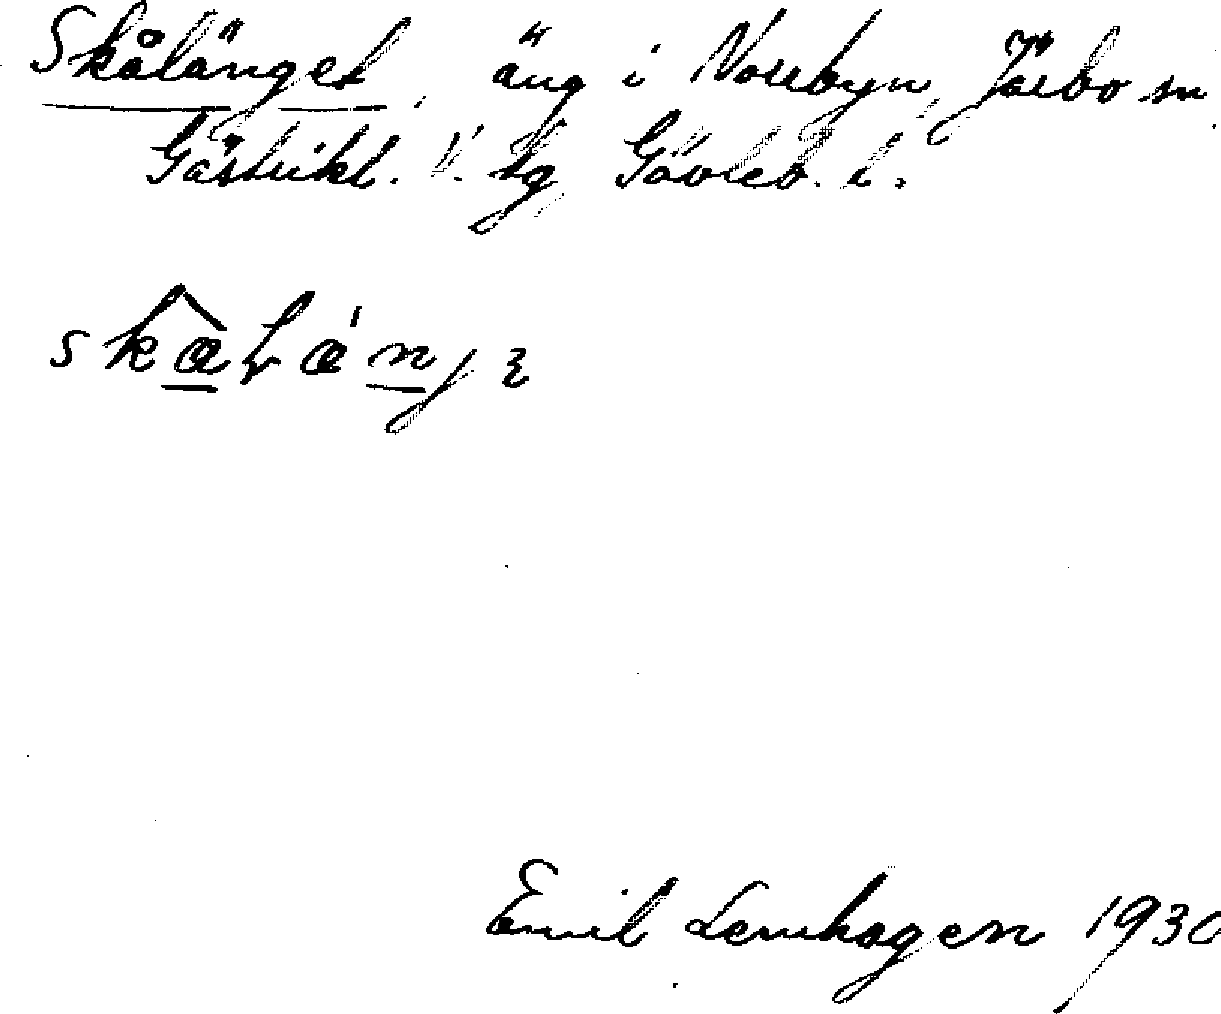 Skålänget, äng i Norrbyn, Järbo sn
Gästrikl. V. tg Gävleb. l.
skålänjɜ
Emil Lenhagen 1930